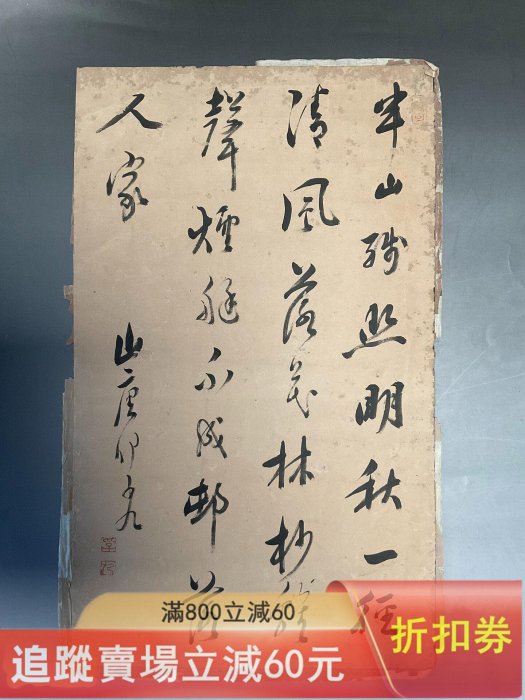 半山殘照明秋一徑
清風落花林杪鐘
聲煙艇不成邨落
人家
滿800立減60
追蹤賣場立減60元
折扣券